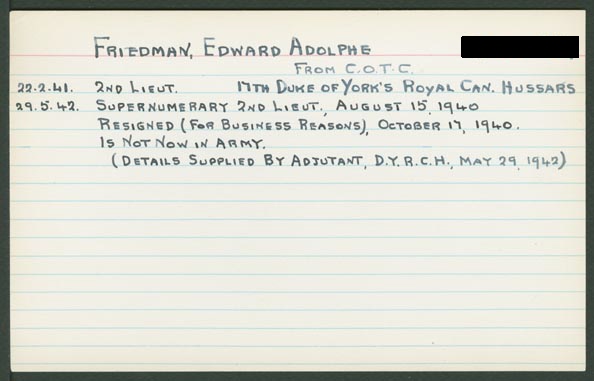 FRIEDMAN, EDWARD ADOLPHE
FROM C.O.T.C.
22.2.41. 2ND LIEUT. 17TH DUKE OF YORK'S ROYAL CAN. HUSSARS
29.5.42. SUPERNUMERARY 2ND LIEUT., AUGUST 15, 1940
RESIGNED (FOR BUSINESS REASONS), OCTOBER 17, 1940.
IS NOT NOW IN ARMY.
(DETAILS SUPPLIED BY ADJUTANT, D.Y.R.C.H., MAY 29, 1942)